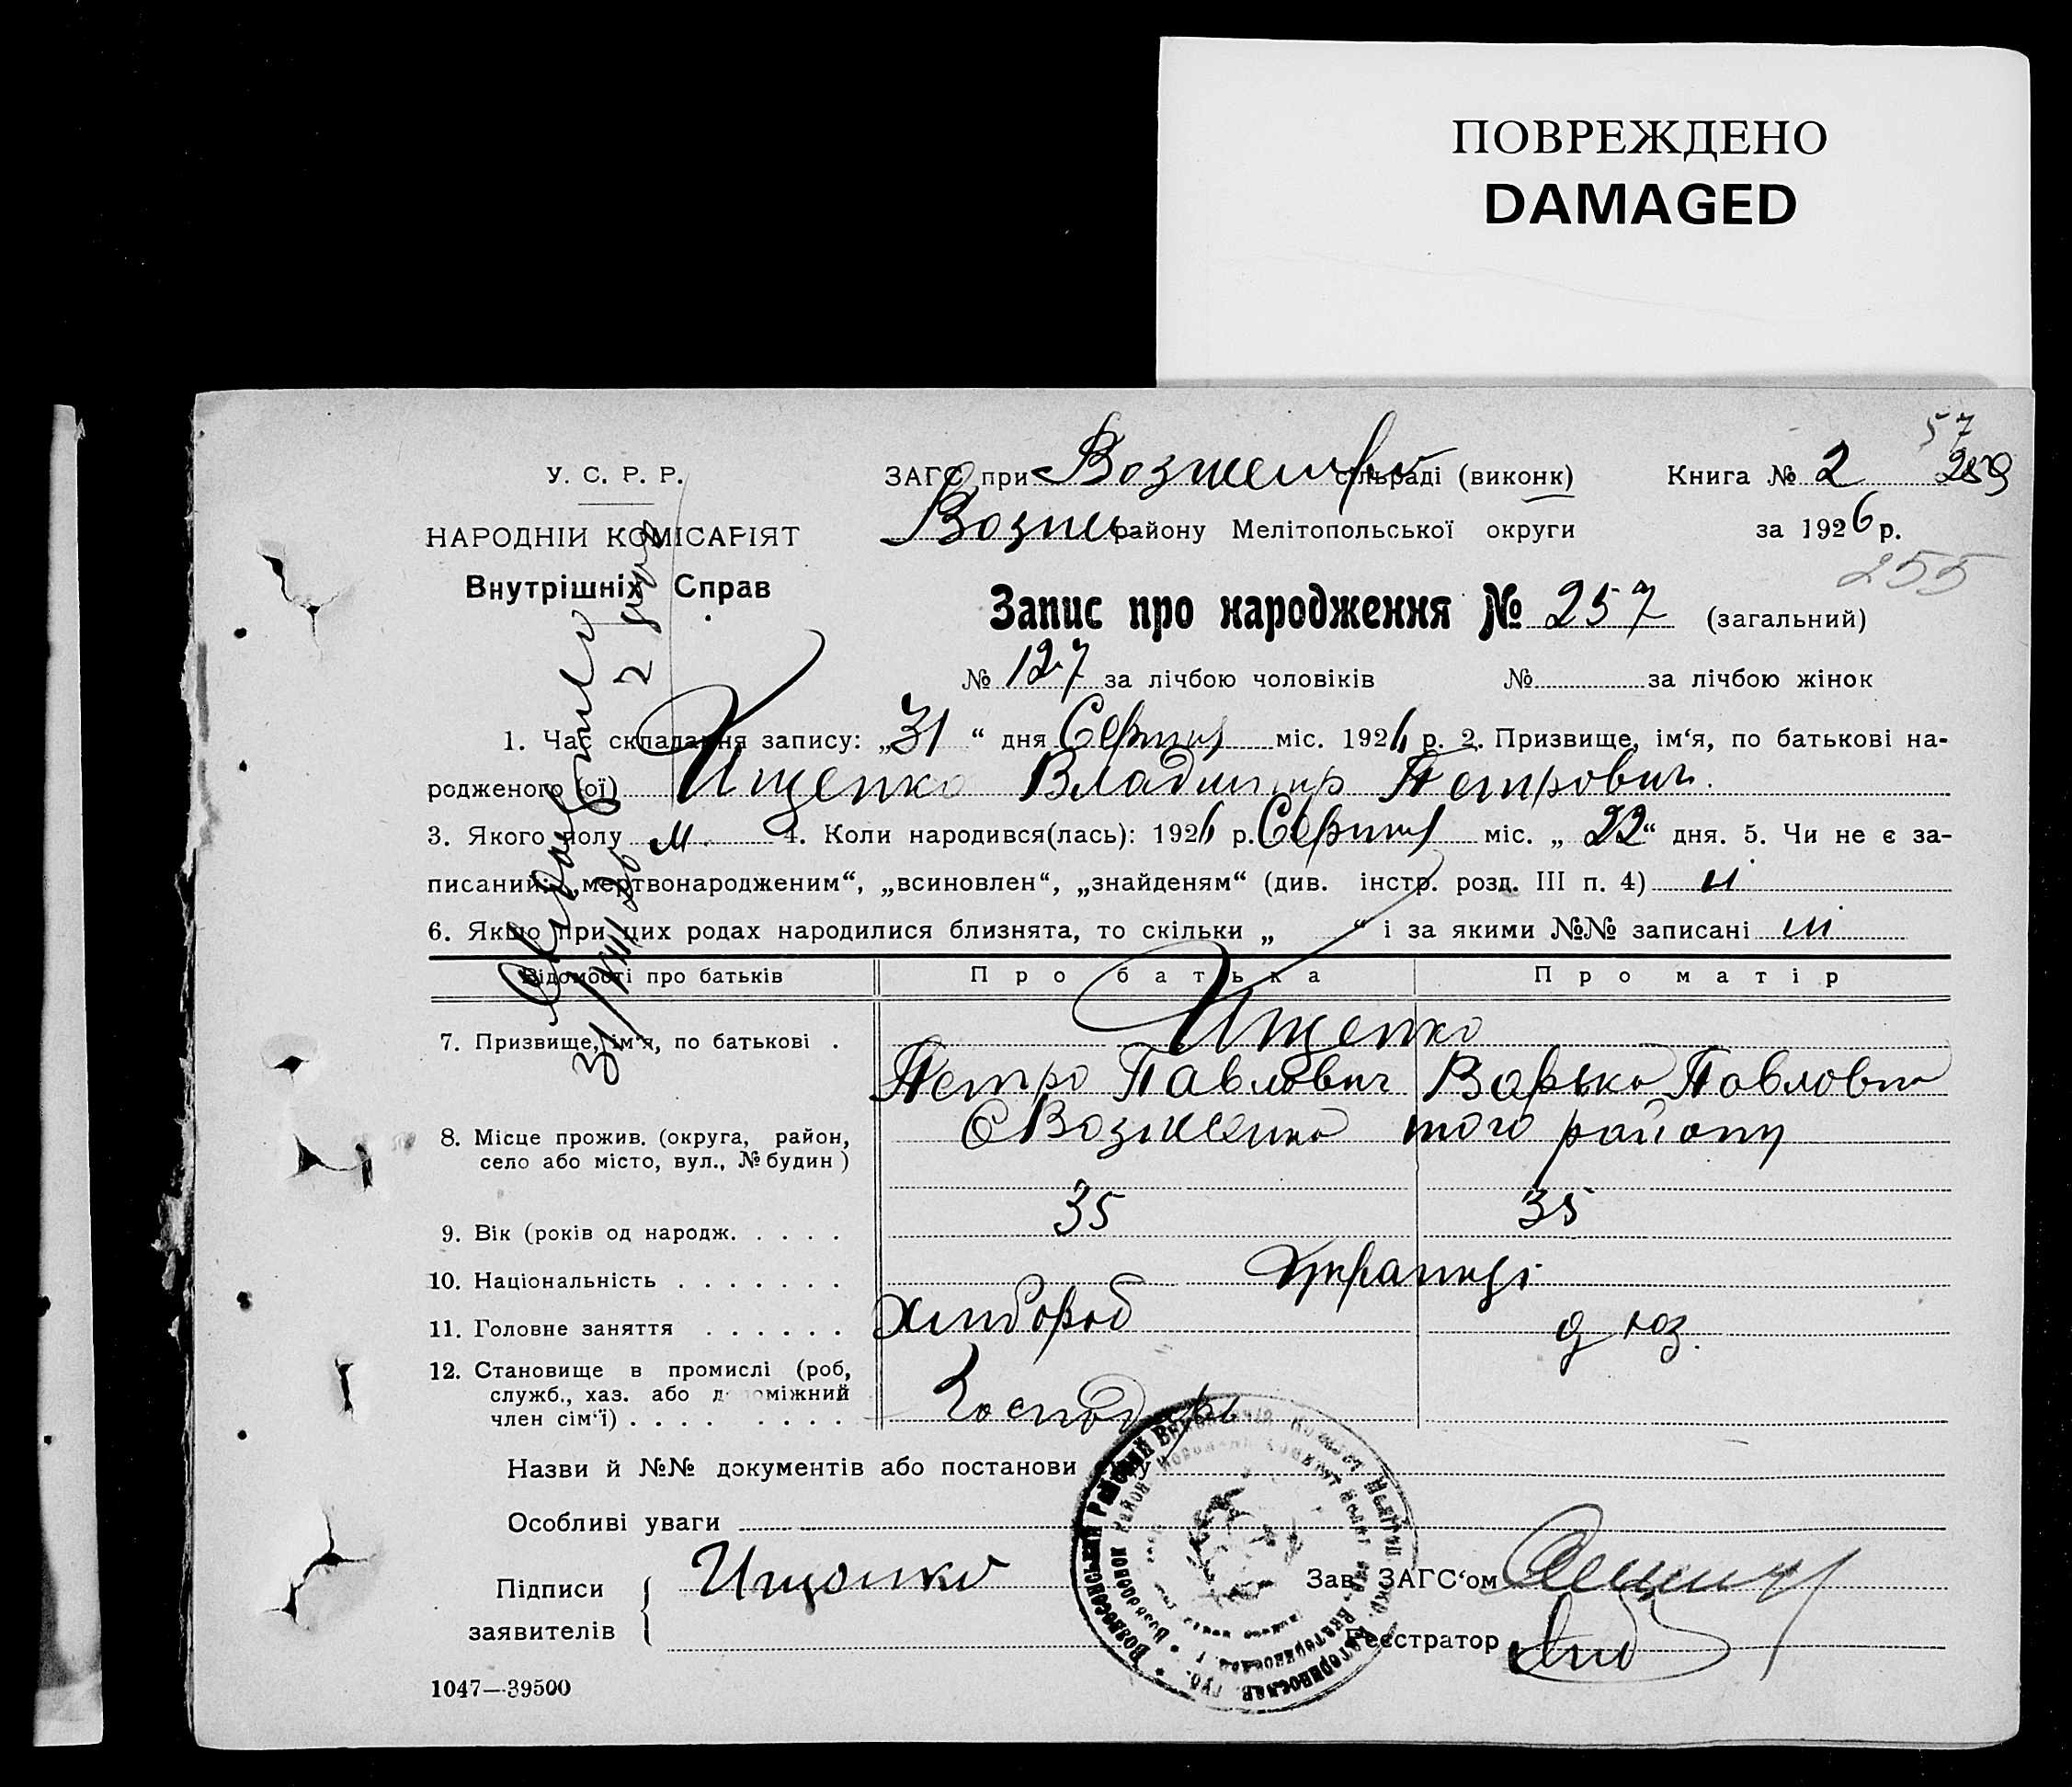 ПОВРЕЖДЕНО
DAMAGED
57
У. С. Р. Р.
ЗАГС при сільраді (виконк)
Книга № 2
259
НАРОДНІИ КОМІСАРІЯТ
району Мелітопольської округи
за 1926 р.
Внутрішніх Справ
255
Запис про народження № 257 (загальний)
№ 127 за лічбою чоловіків № за лічбою жінок
1. Час складання запису: „31“ дня Серпня міс. 1926 р. 2. Призвище, ім‘я, по батькові на-
родженого (ої) Ищенко Владимир Петрович.
3. Якого полу м. 4. Коли народився(лась): 1926 р. Серпня міс. „22“ дня. 5. Чи не є за-
писаний: „мертвонародженим“, „всиновлен“, „знайденям“ (див. інстр. розд. III п. 4) ні
6. Якщо при цих родах народилися близнята, то скільки „ “ і за якими №№ записані ні
Відомості про батьків Про батька Про матір
7. Призвище, ім‘я, по батькові . Ищенко
Петро Павлович Варька Павловна
8. Місце прожив. (округа, район,
село або місто, вул., № будин)
того району
9. Вік (років од народж. . . . . 35 35
10. Національність . . . . . . . Українці
11. Головне заняття . . . . . . Хлібороб д хоз.
12. Становище в промислі (роб,
служб., хаз. або допоміжний
член сім‘ї) . . . . . . . . Господарь
Назви й №№ документів або постанови
Особливі уваги
Підписи
заявителів
Ищенко
Зав. ЗАГС‘ом
Реєстратор
1047—39500